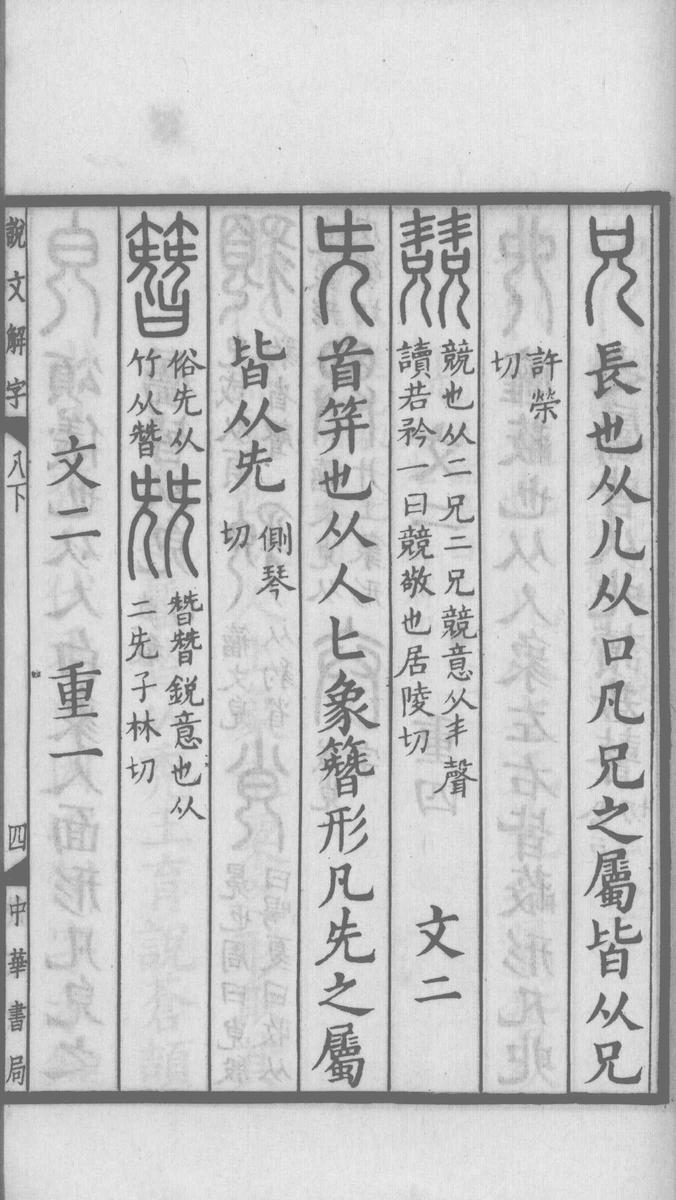 兄長也从儿从口凡兄之屬皆从兄
許榮
切
競競也从二兄二兄競意从丰聲
讀若矜一曰競敬也居陵切
文二
兂首笄也从人匕象簪形凡兂之屬
皆从兂
側琴
切
簪俗兂从
竹从朁
兟朁朁銳意也从
二兂子林切
文二 重一
說文解字 八下 四 中華書局